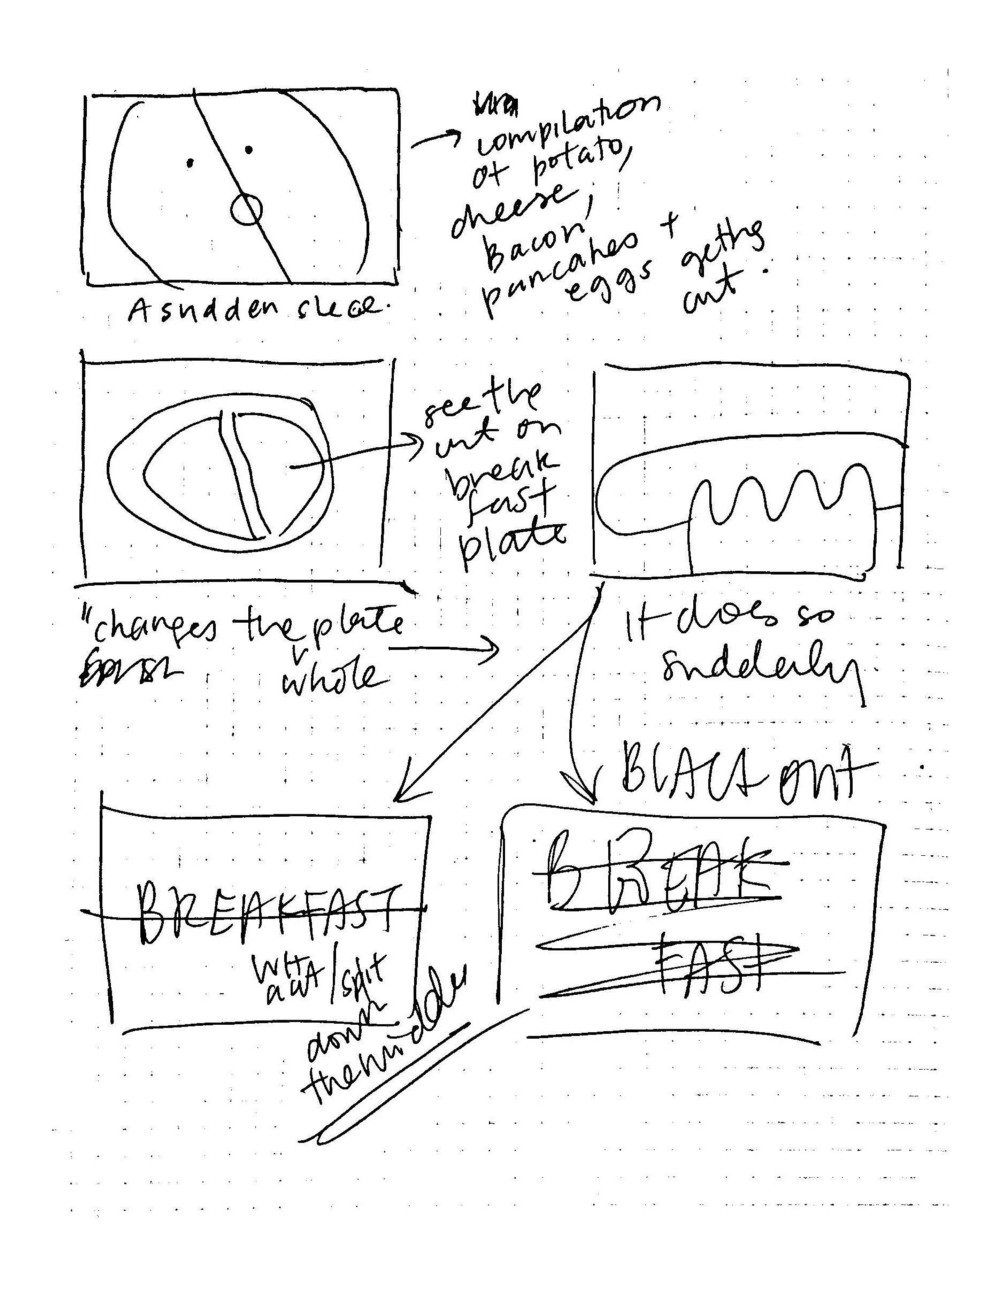 compilation
of potato,
cheese,
Bacon,
pancakes +
eggs getting
cut.
A sudden slice.
see the
cut on
break
fast
plate
"changes the plate
whole
It does so
suddenly.
BLACK out
BREAKFAST
cut/split
down
the middle
BREAK
FAST